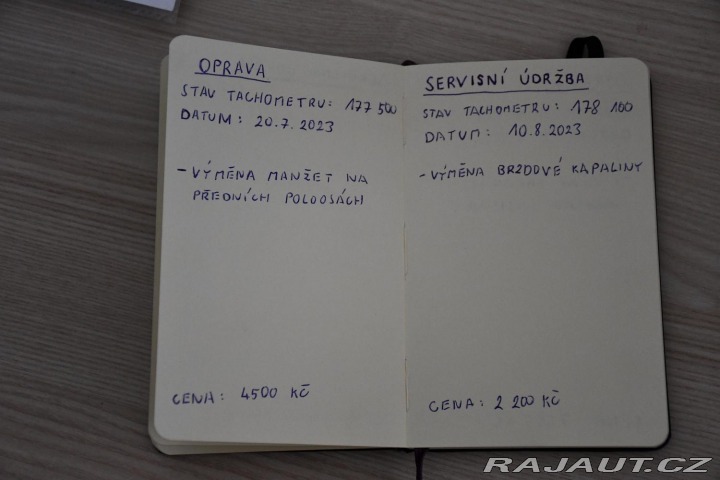 OPRAVA
STAV TACHOMETRU: 177 500
DATUM: 20.7.2023
- VÝMĚNA MANŽET NA
PŘEDNÍCH POLOOSÁCH
CENA: 4500 KČ
SERVISNÍ ÚDRŽBA
STAV TACHOMETRU: 178 100
DATUM: 10.8.2023
- VÝMĚNA BRZDOVÉ KAPALINY
CENA: 2 200 KČ
RAJAUT.CZ